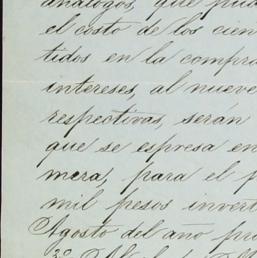 analogos, que pud
el costo de los cien
tidos en la compra
intereses, al nueve
respectivas, serán
que se espresa en
mera, para el p
mil pesos invert
Agosto del año pro
3º